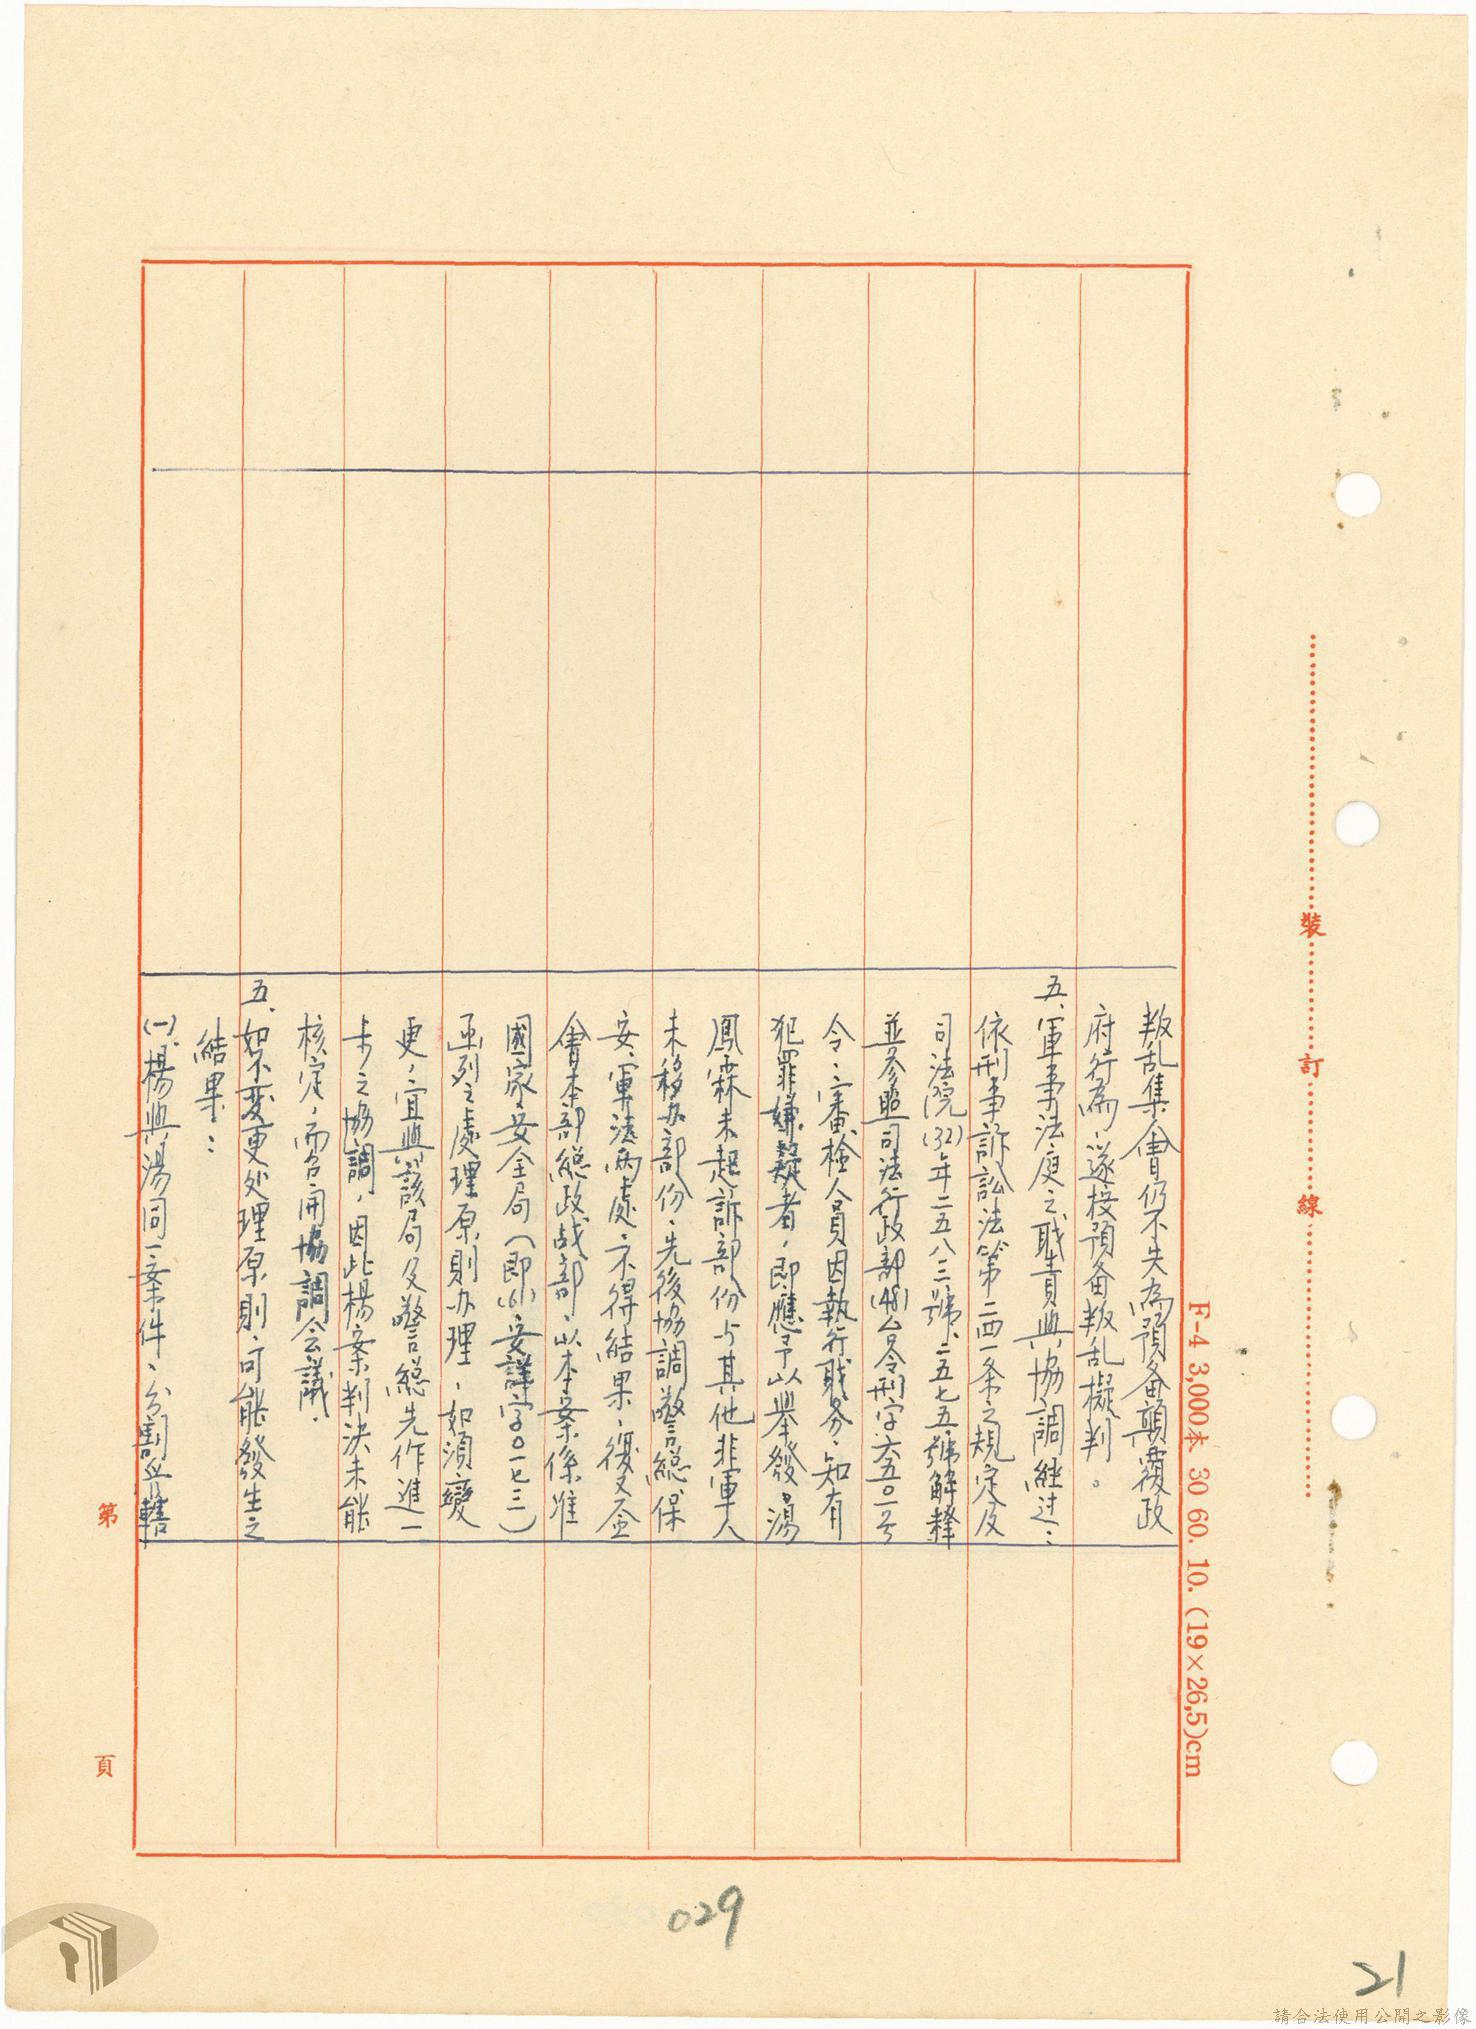 叛乱集會仍不失為預备顛覆政
府行為，遂按預备叛乱擬判。
五、軍事法庭之职責與協調經过：
依刑事訴訟法第二四一条之規定及
司法院(32)年二五八三號、二五七五號解釋
並参照司法行政部(48)台令刑字六五〇一号
令、審檢人員因執行职务、知有
犯罪嫌疑者，即應予以舉發，湯
鳳霖未起訴部份与其他非軍人
未移办部份、先後協調警總保
安、軍法両處、不得結果、復又簽
會本部總政战部、以本案係准
國家安全局（即(61)安謀字〇一七三）
函列之處理原則办理，如須變
更，宜與該局及警總先作進一
步之協調，因此楊案判決未能
核定，而召開協調会議．
五、如不変更处理原則、可能發生之
結果：
(一)、楊與湯同一案件、分割管轄
裝
訂
線
F-4 3,000本 30 60. 10. (19×26,5)cm
第
頁
029
21
請合法使用公開之影像